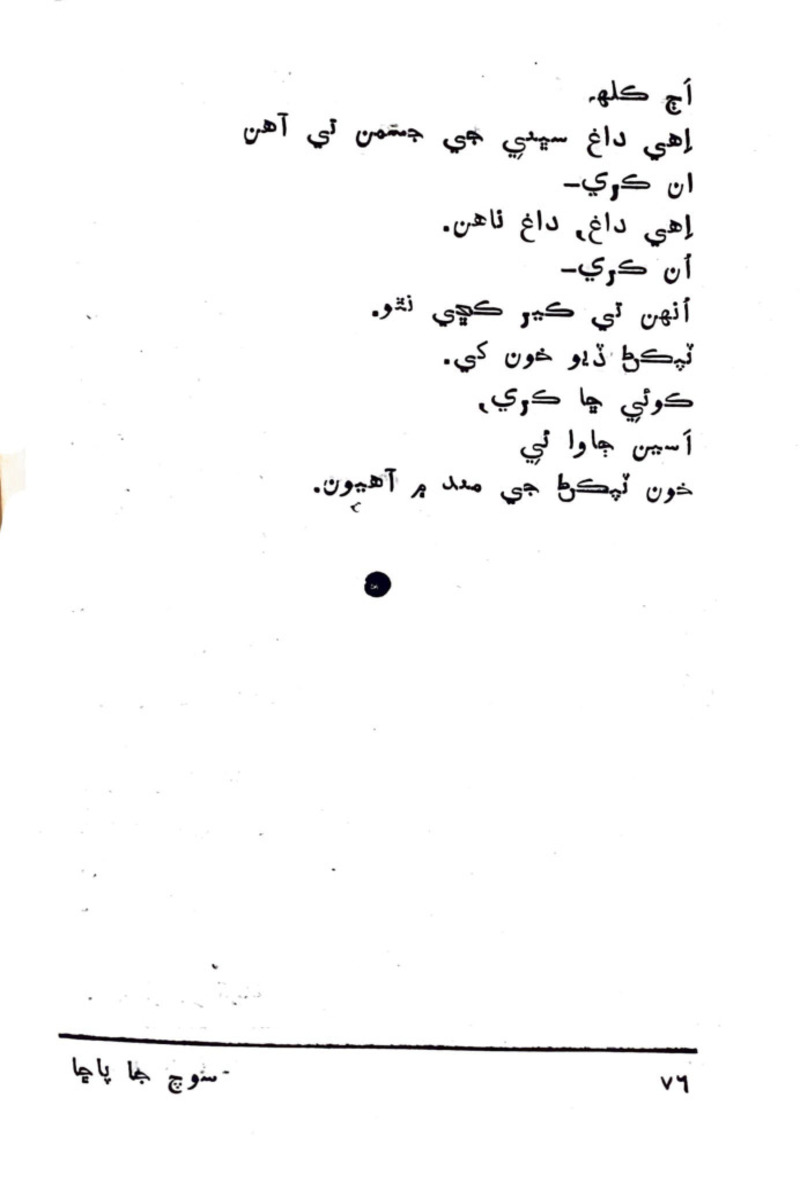 اَڄ ڪلهہ
اِهي داغ سڀني جي جسمن تي آهن
ان ڪري—
اِهي داغ، داغ ناهن.
اُن ڪري—
اُنهن تي ڪير ڪڇي نٿو.
ٽپڪڻ ڏيو خون کي.
ڪوئي ڇا ڪري،
اَسين ڄاوا ئي
خون ٽپڪڻ جي مند ۾ آهيون.
سوچ جا پاڇا
٧٦